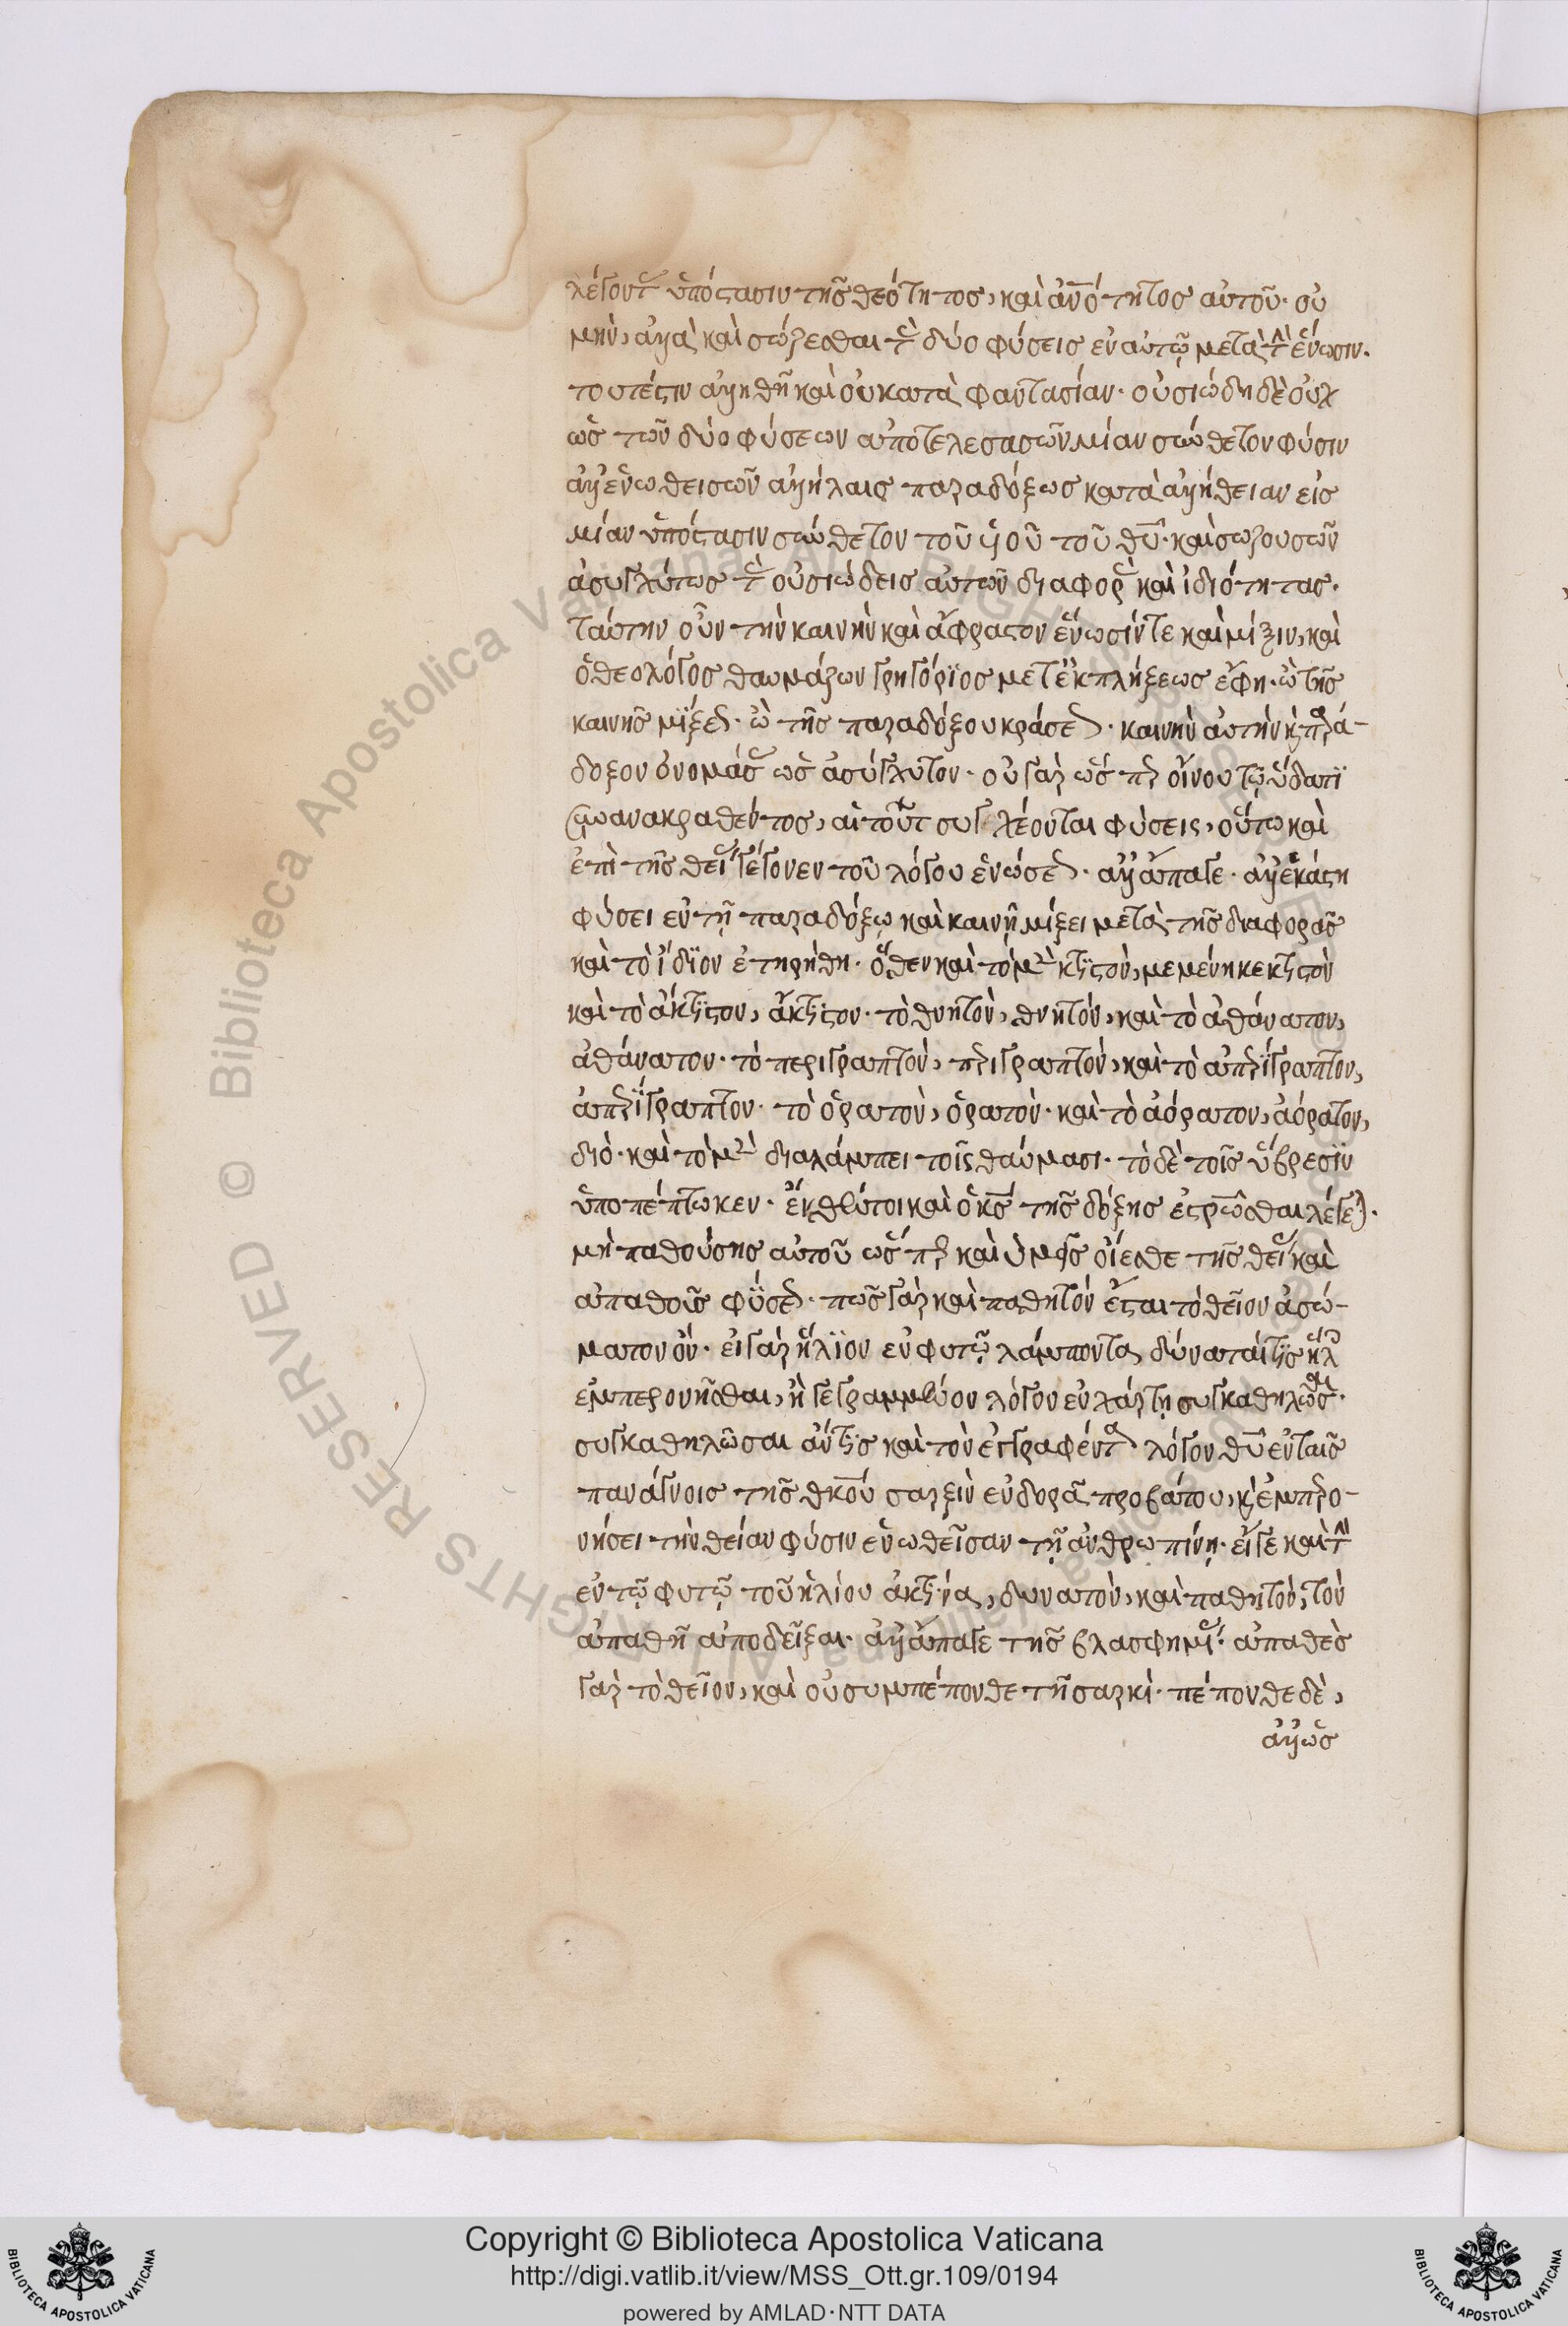 λέγοντ(ες) ὑπόστασιν τῆς θεότητος, καὶ ἀνότητος αὐτοῦ. οὐ
μὴν, ἀλλὰ καὶ σώζεσθαι τ(ὰς) δύο φύσεις ἐν αὐτῷ μετὰ τ(ὴν) ἕνωσιν.
τουτέστιν ἀληθῆ καὶ οὐ κατὰ φαντασίαν. οὐσιώδη δὲ οὐχ
ὡς τῶν δύο φύσεων ἀποτελεσασῶν μίαν σύνθετον φύσιν
ἀλλ' ἑνωθεισῶν ἀλλήλαις παραδόξως κατὰ ἀλήθειαν εἰς
μίαν ὑπόστασιν σύνθετον τοῦ υἱοῦ τοῦ θυ. καὶ σωζουσῶν
ἀσυγχύτως τ(ὰς) οὐσιώδεις αὐτῶν διαφορ(ὰς) καὶ ἰδιότητας.
ταύτην οὖν τὴν καινὴν καὶ ἄφραστον ἕνωσίν τε καὶ μίξιν, καὶ
ὁ θεολόγος θαυμάζων γρηγόριος μετ' ἐκπλήξεως ἔφη. ὢ τῆς
καινῆς μίξε(ως). ὢ τῆς παραδόξου κράσε(ως). καινὴν αὐτὴν κ(αὶ) παρά-
δοξον ὀνομάσ(ας) ὡς ἀσύγχυτον. οὐ γὰρ ὥσπερ οἴνου τῷ ὕδατι
συνανακραθέντος, αἱ τούτ(ων) συγχέονται φύσεις, οὕτω καὶ
ἐπὶ τῆς θεί(ας) γέγονεν τοῦ λόγου ἑνώσε(ως). ἀλλ' ἄπαγε. ἀλλ' ἑκάστη
φύσει ἐν τῇ παραδόξῳ καὶ καινῇ μίξει μετὰ τῆς διαφορᾶς
καὶ τὸ ἴδιον ἐτηρήθη. ὅθεν καὶ τὸ μ(ὲν) κτιστὸν, μεμένηκε κτιστὸν
καὶ τὸ ἄκτιστον, ἄκτιστον. τὸ θνητὸν, θνητόν, καὶ τὸ ἀθάνατον,
ἀθάνατον. τὸ περιγραπτὸν, περιγραπτόν, καὶ τὸ ἀπερίγραπτον,
ἀπερίγραπτον. τὸ ὁρατὸν, ὁρατὸν. καὶ τὸ ἀόρατον, ἀόρατον,
διὸ. καὶ τὸ μ(ὲν) διαλάμπει τοῖς θαύμασι. τὸ δὲ τοῖς ὕβρεσιν
ὑποπέπτωκεν. ἐνθέντοι καὶ ὁ κς τῆς δόξης ἐστρῶσθαι λέγε(ται).
μὴ παθούσης αὐτοῦ ὥσπερ καὶ ὑμεῖς οἴεσθε τῆς θεί(ας) καὶ
ἀπαθοῦς φύσε(ως). πῶς γὰρ καὶ παθητόν ἔσται τὸ θεῖον ἀσώ-
ματον ὄν. εἰ γὰρ ἥλιον ἐν φυτῷ λάμποντα δύναταί τις ἥλ(οις)
ἐμπερονῆσθαι, ἢ γεγραμμένον λόγον ἐν χάρτῃ συγκαθηλῶσ(αι).
συγκαθηλῶσαι ἄν τις καὶ τὸν ἐγγραφέντα λόγον θυ ἐν ταῖς
πανάγνοις τῆς θκου σαρξὶν ἐν δορᾷ προβάτου, κ(αὶ) ἐμπερο-
νήσει τὴν θείαν φύσιν ἑνωθεῖσαν τῇ ἀνθρωπίνῃ. εἴγε καὶ τ(ὴν)
ἐν τῷ φυτῷ τοῦ ἡλίου ἀκτῖνα, δυνατὸν, καὶ παθητὸν, τὸν
ἀπαθῆ ἀποδεῖξαι. ἀλλ' ἄπαγε τῆς βλασφημί(ας). ἀπαθὲς
γὰρ τὸ θεῖον, καὶ οὐ συμπέπονθε τῇ σαρκὶ. πέπονθε δὲ,
ἀλλ' ὡς
Copyright © Biblioteca Apostolica Vaticana
http://digi.vatlib.it/view/MSS_Ott.gr.109/0194
powered by AMLAD·NTT DATA